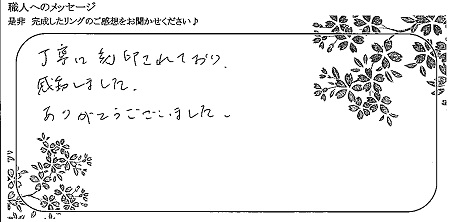 職人へのメッセージ
是非 完成したリングのご感想をお聞かせください♪
丁寧に刻印されており、
感動しました。
ありがとうございました。